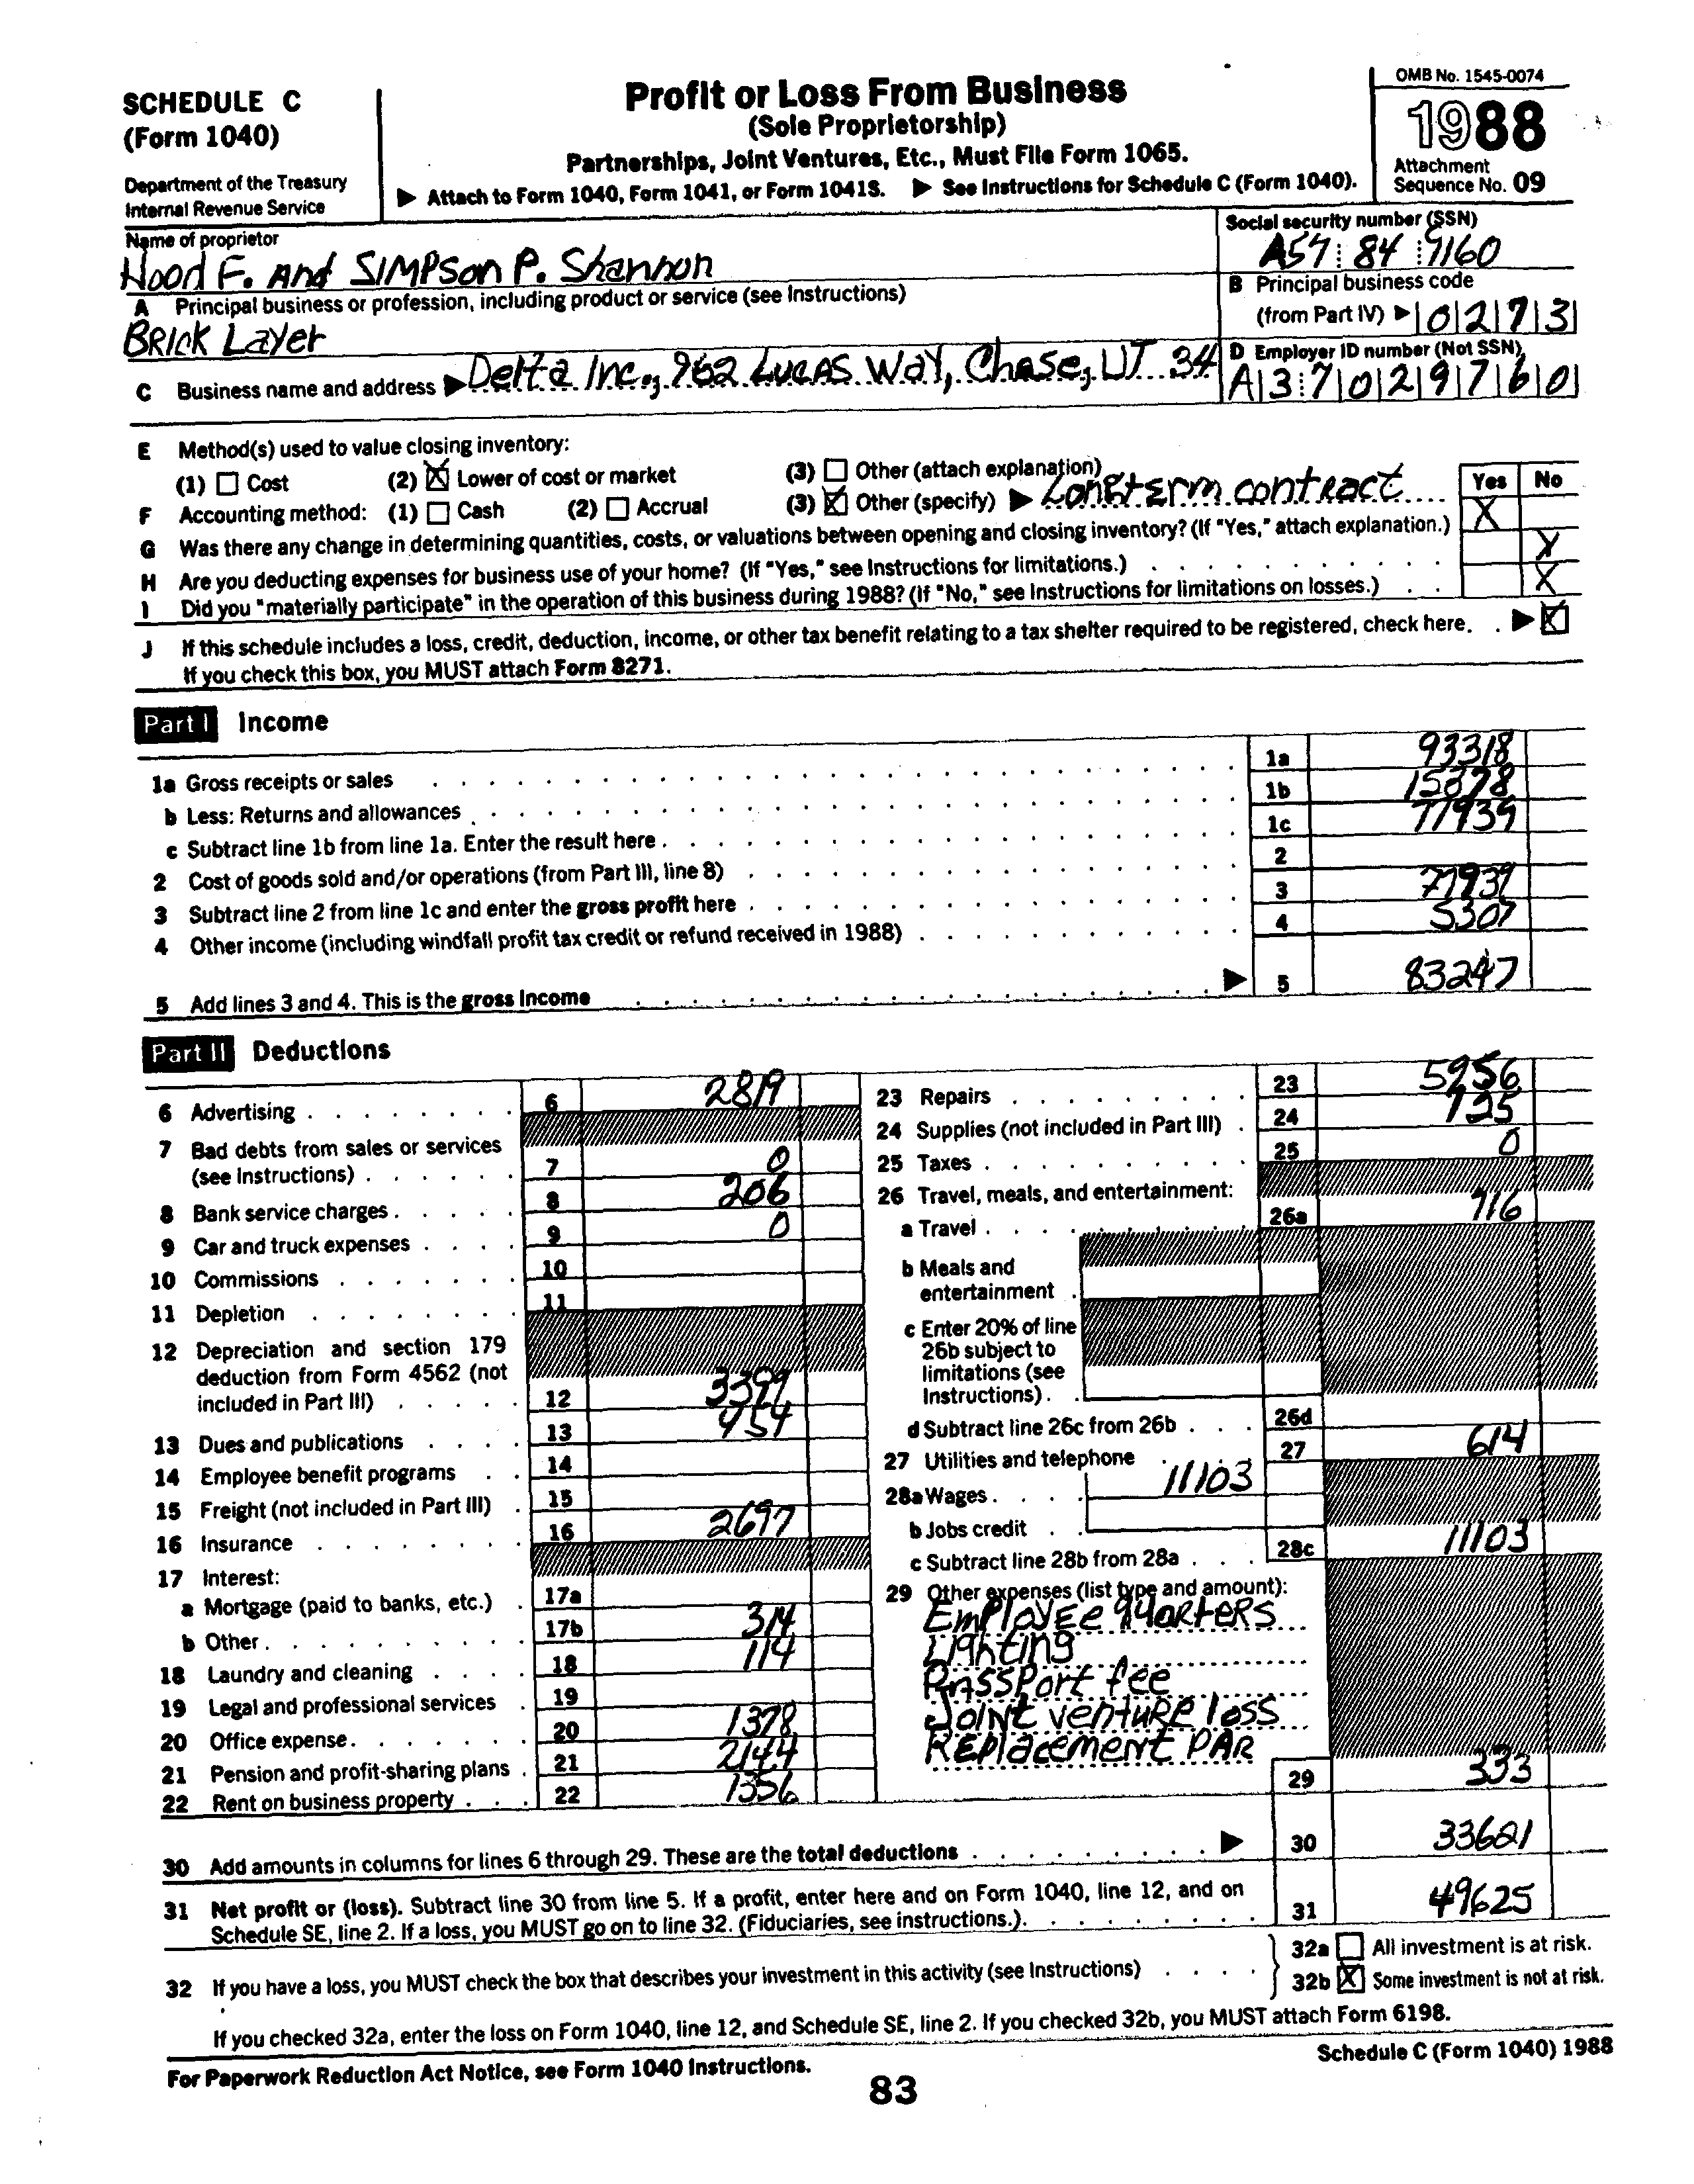 SCHEDULE C
(Form 1040)
Department of the Treasury
Internal Revenue Service
Profit or Loss From Business
(Sole Proprietorship)
Partnerships, Joint Ventures, Etc., Must File Form 1065.
▶ Attach to Form 1040, Form 1041, or Form 1041S. ▶ See Instructions for Schedule C (Form 1040).
OMB No. 1545-0074
1988
Attachment
Sequence No. 09
Name of proprietor
Hood F. And SIMPSon P. Shannon
Social security number (SSN)
84
A Principal business or profession, including product or service (see Instructions)
BRICK LAYER
B Principal business code
(from Part IV) ▶ 0273
C Business name and address ▶ Delta Inc., 962 LUCAS WAY, Chase, UT 34
D Employer ID number (Not SSN)
A37029760
E Method(s) used to value closing inventory:
(1) Cost (2) X Lower of cost or market (3) Other (attach explanation)
F Accounting method: (1) Cash (2) Accrual (3) X Other (specify) ▶ Longterm contract
Yes No
G Was there any change in determining quantities, costs, or valuations between opening and closing inventory? (If "Yes," attach explanation.) X
H Are you deducting expenses for business use of your home? (If "Yes," see Instructions for limitations.) X
I Did you "materially participate" in the operation of this business during 1988? (If "No," see Instructions for limitations on losses.) X
J If this schedule includes a loss, credit, deduction, income, or other tax benefit relating to a tax shelter required to be registered, check here. ▶ X
If you check this box, you MUST attach Form 8271.
Part I Income
1a Gross receipts or sales 1a 93318
b Less: Returns and allowances 1b 15378
c Subtract line 1b from line 1a. Enter the result here 1c 77939
2 Cost of goods sold and/or operations (from Part III, line 8) 2
3 Subtract line 2 from line 1c and enter the gross profit here 3 77939
4 Other income (including windfall profit tax credit or refund received in 1988) 4 5307
5 Add lines 3 and 4. This is the gross income ▶ 5 83247
Part II Deductions
6 Advertising 6 2819
7 Bad debts from sales or services
(see Instructions) 7 0
8 Bank service charges 8 206
9 Car and truck expenses 9 0
10 Commissions 10
11 Depletion 11
12 Depreciation and section 179
deduction from Form 4562 (not
included in Part III) 12 3399
13 Dues and publications 13
14 Employee benefit programs 14
15 Freight (not included in Part III) 15
16 Insurance 16 2697
17 Interest:
a Mortgage (paid to banks, etc.) 17a
b Other 17b 314
18 Laundry and cleaning 18 114
19 Legal and professional services 19
20 Office expense 20 1378
21 Pension and profit-sharing plans 21 2144
22 Rent on business property 22 1356
23 Repairs 23
24 Supplies (not included in Part III) 24
25 Taxes 25 0
26 Travel, meals, and entertainment:
a Travel 26a
b Meals and
entertainment
c Enter 20% of line
26b subject to
limitations (see
Instructions)
d Subtract line 26c from 26b 26d
27 Utilities and telephone 27 614
28a Wages 11103
b Jobs credit
c Subtract line 28b from 28a 28c 11103
29 Other expenses (list type and amount):
EmPloyEE quaRtERS
Lighting
PASSPort fee
Joint ventuRE loss
REPlacement PAR
29 333
30 Add amounts in columns for lines 6 through 29. These are the total deductions ▶ 30 33621
31 Net profit or (loss). Subtract line 30 from line 5. If a profit, enter here and on Form 1040, line 12, and on
Schedule SE, line 2. If a loss, you MUST go on to line 32. (Fiduciaries, see instructions.) 31 49625
32 If you have a loss, you MUST check the box that describes your investment in this activity (see Instructions)
32a All investment is at risk.
32b X Some investment is not at risk.
If you checked 32a, enter the loss on Form 1040, line 12, and Schedule SE, line 2. If you checked 32b, you MUST attach Form 6198.
For Paperwork Reduction Act Notice, see Form 1040 Instructions.
Schedule C (Form 1040) 1988
83